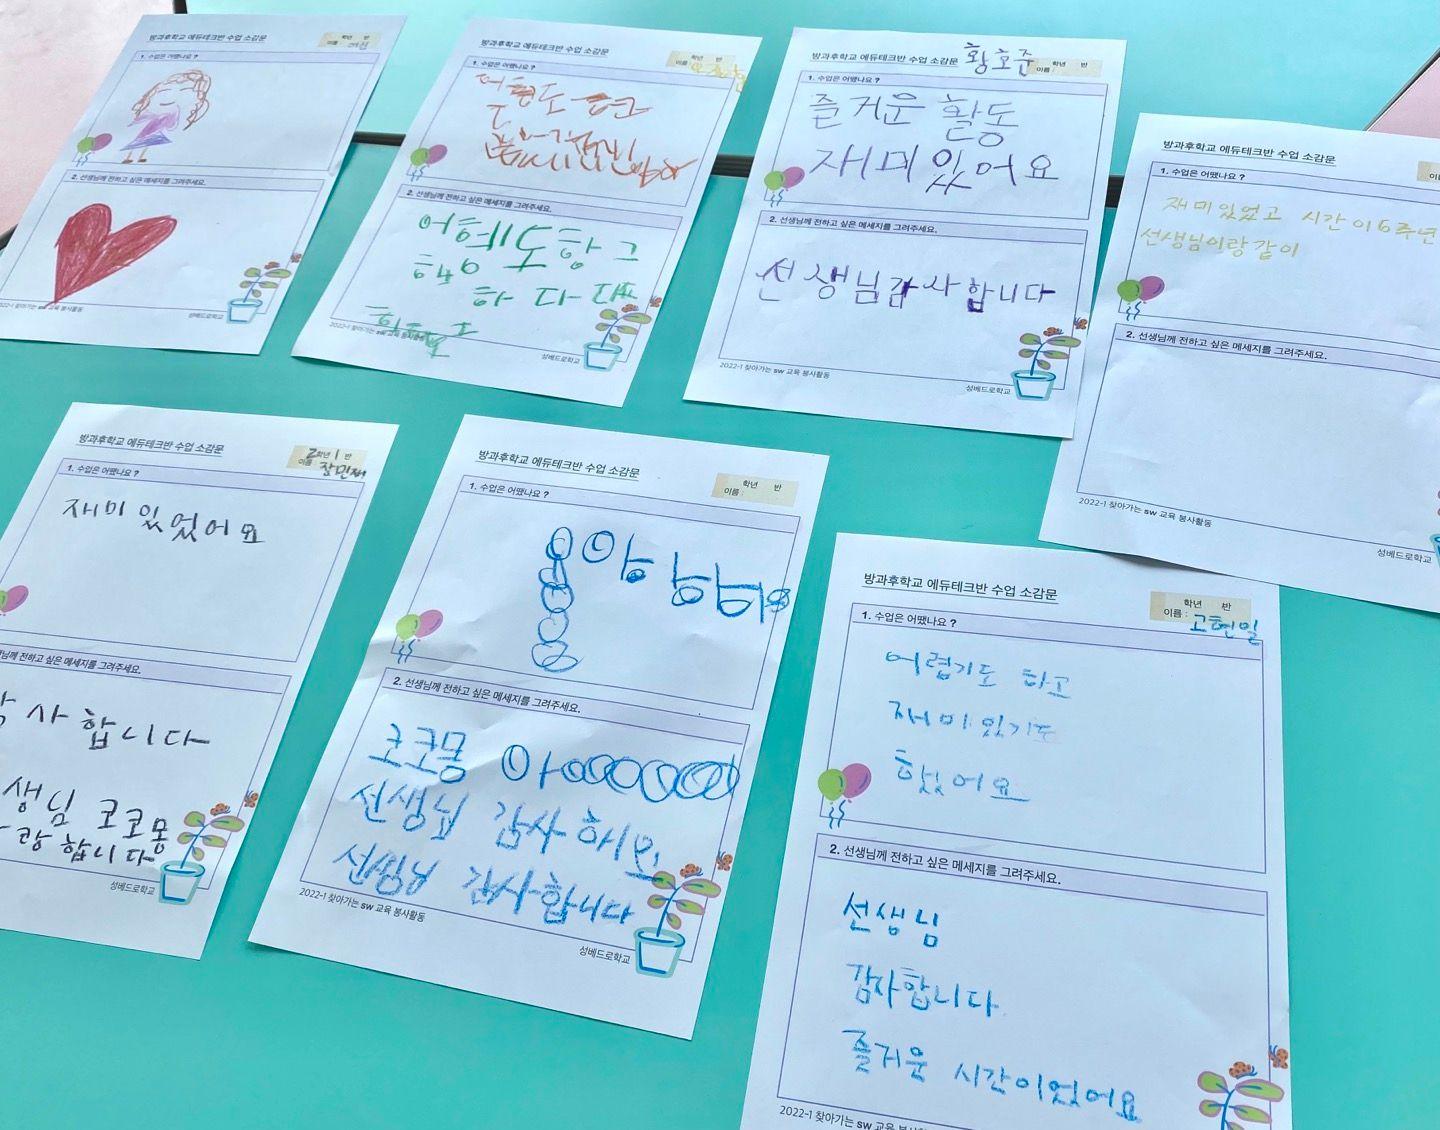 방과후학교 에듀테크반 수업 소감문
학년 반
이름 :
1. 수업은 어땠나요 ?
2. 선생님께 전하고 싶은 메세지를 그려주세요.
찾아가는 sw 교육 봉사활동
성베드로학교
방과후학교 에듀테크반 수업 소감문
학년 반
이름 :
1. 수업은 어땠나요 ?
2. 선생님께 전하고 싶은 메세지를 그려주세요.
2022-1 찾아가는 sw 교육 봉사활동
성베드로학교
방과후학교 에듀테크반 수업 소감문
황호준
학년 반
이름 :
1. 수업은 어땠나요 ?
즐거운 활동
재미있어요
2. 선생님께 전하고 싶은 메세지를 그려주세요.
선생님감사합니다
2022-1 찾아가는 sw 교육 봉사활동
성베드로학교
방과후학교 에듀테크반 수업 소감문
1. 수업은 어땠나요 ?
재미있었고 시간이6주년
선생님이랑같이
2. 선생님께 전하고 싶은 메세지를 그려주세요.
2022-1 찾아가는 sw 교육 봉사활동
성베드로학교
방과후학교 에듀테크반 수업 소감문
2학년 1 반
이름 장민재
1. 수업은 어땠나요 ?
재미있었어요
선생님께 전하고 싶은 메세지를 그려주세요.
사합니다
생님 코코몽
랑합니다
성베드로학교
방과후학교 에듀테크반 수업 소감문
학년 반
이름 :
1. 수업은 어땠나요 ?
2. 선생님께 전하고 싶은 메세지를 그려주세요.
코코몽
선생님 감사해요
선생님 감사합니다
2022-1 찾아가는 sw 교육 봉사활동
성베드로학교
방과후학교 에듀테크반 수업 소감문
학년 반
이름 : 고현일
1. 수업은 어땠나요 ?
어렵기도 하고
재미있기도
했어요
2. 선생님께 전하고 싶은 메세지를 그려주세요.
선생님
감사합니다
즐거운 시간이었어요
2022-1 찾아가는 sw 교육 봉사활동